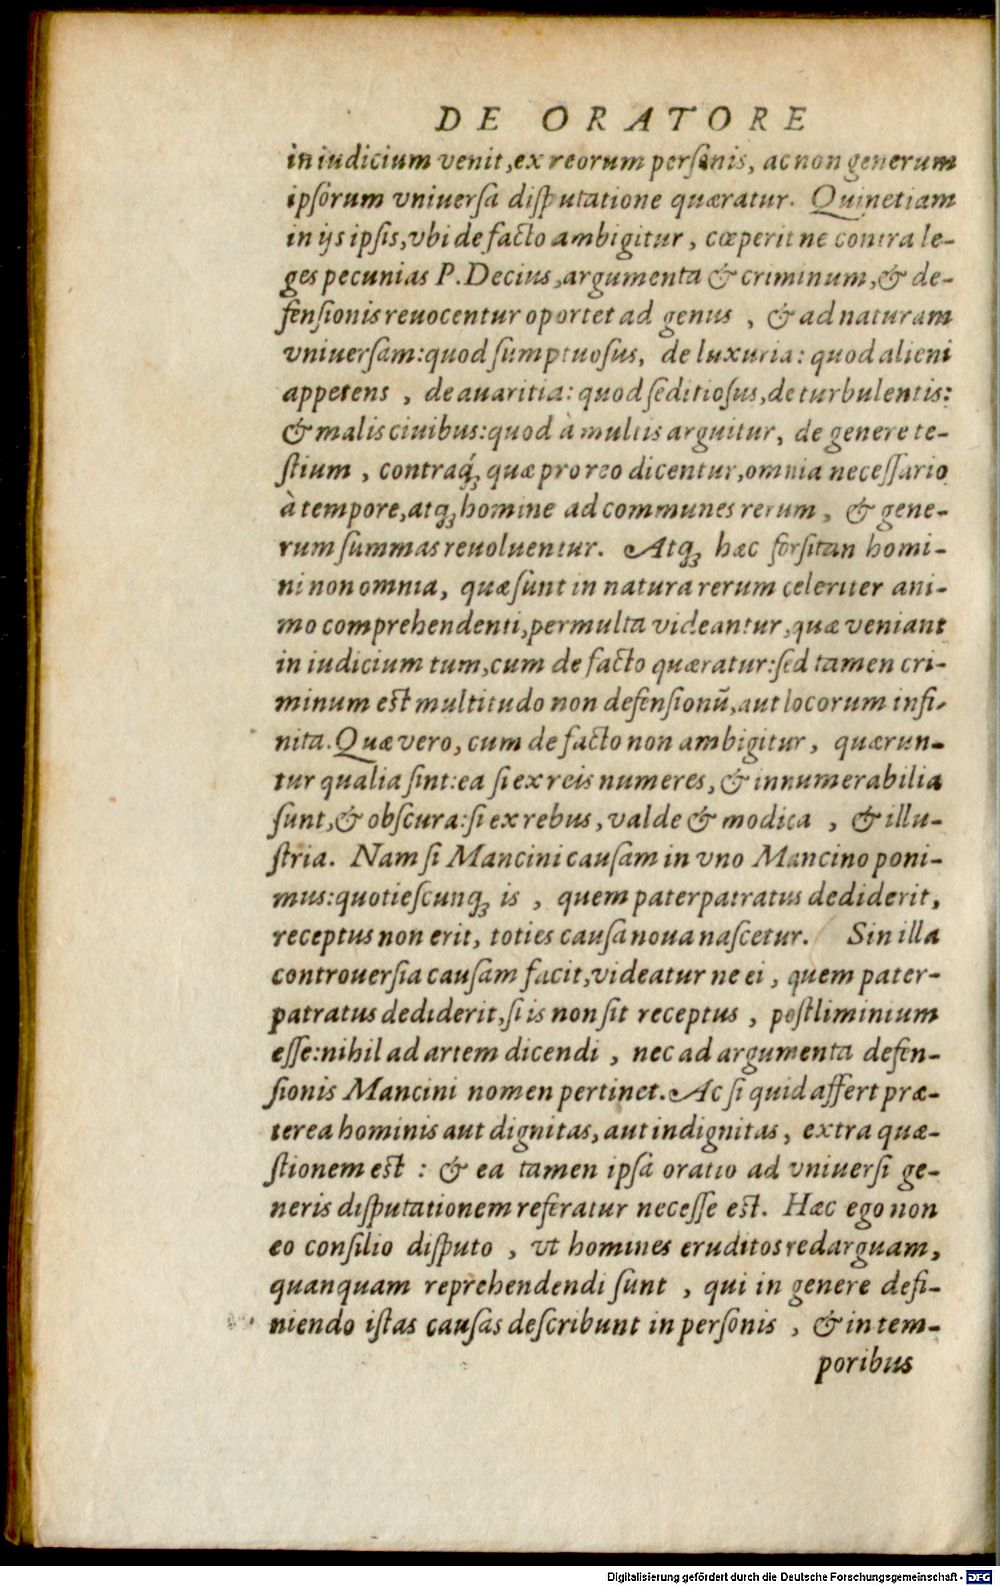 DE ORATORE
in iudicium venit, ex reorum personis, ac non generum
ipsorum vniuersa disputatione quæratur. Quinetiam
in ijs ipsis, vbi de facto ambigitur, cœperit ne contra le-
ges pecunias P. Decius, argumenta & criminum, & de-
fensionis reuocentur oportet ad genus, & ad naturam
vniuersam: quod sumptuosus, de luxuria: quod alieni
appetens, de auaritia: quod seditiosus, de turbulentis:
& malis ciuibus: quod à multis arguitur, de genere te-
stium, contraq́; quæ pro reo dicentur, omnia necessario
à tempore, atq; homine ad communes rerum, & gene-
rum summas reuoluentur. Atq; hæc forsitan homi-
ni non omnia, quæ sunt in natura rerum celeriter ani-
mo comprehendenti, permulta videantur, quæ veniant
in iudicium tum, cum de facto quæratur: sed tamen cri-
minum est multitudo non defensionũ, aut locorum infi-
nita. Quæ vero, cum de facto non ambigitur, quærun-
tur qualia sint: ea si ex reis numeres, & innumerabilia
sunt, & obscura: si ex rebus, valde & modica, & illu-
stria. Nam si Mancini causam in vno Mancino poni-
mus: quotiescunq; is, quem paterpatratus dediderit,
receptus non erit, toties causa noua nascetur. Sin illa
controuersia causam facit, videatur ne ei, quem pater-
patratus dediderit, si is non sit receptus, postliminium
esse: nihil ad artem dicendi, nec ad argumenta defen-
sionis Mancini nomen pertinet. Ac si quid affert præ-
terea hominis aut dignitas, aut indignitas, extra quæ-
stionem est: & ea tamen ipsa oratio ad vniuersi ge-
neris disputationem referatur necesse est. Hæc ego non
eo consilio disputo, vt homines eruditos redarguam,
quanquam reprehendendi sunt, qui in genere defi-
niendo istas causas describunt in personis, & in tem-
poribus
Digitalisierung gefördert durch die Deutsche Forschungsgemeinschaft - DFG